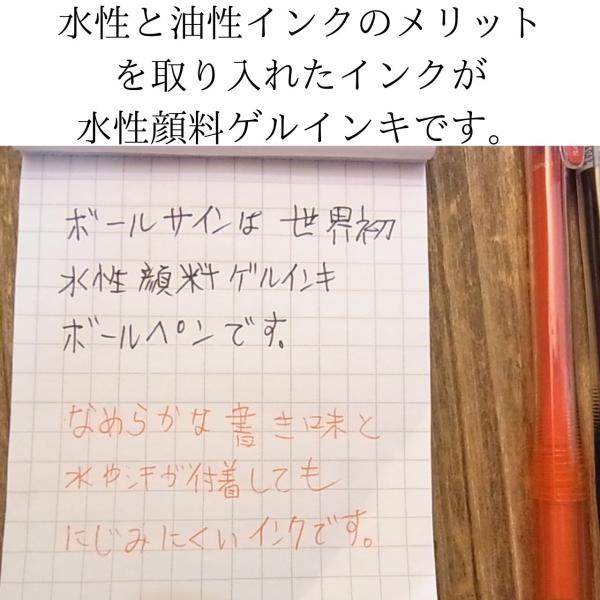 水性と油性インクのメリット
を取り入れたインクが
水性顔料ゲルインキです。
ボールサインは 世界初
水性顔料ゲルインキ
ボールペンです。
なめらかな書き味と
水や汗が付着しても
にじみにくいインクです。